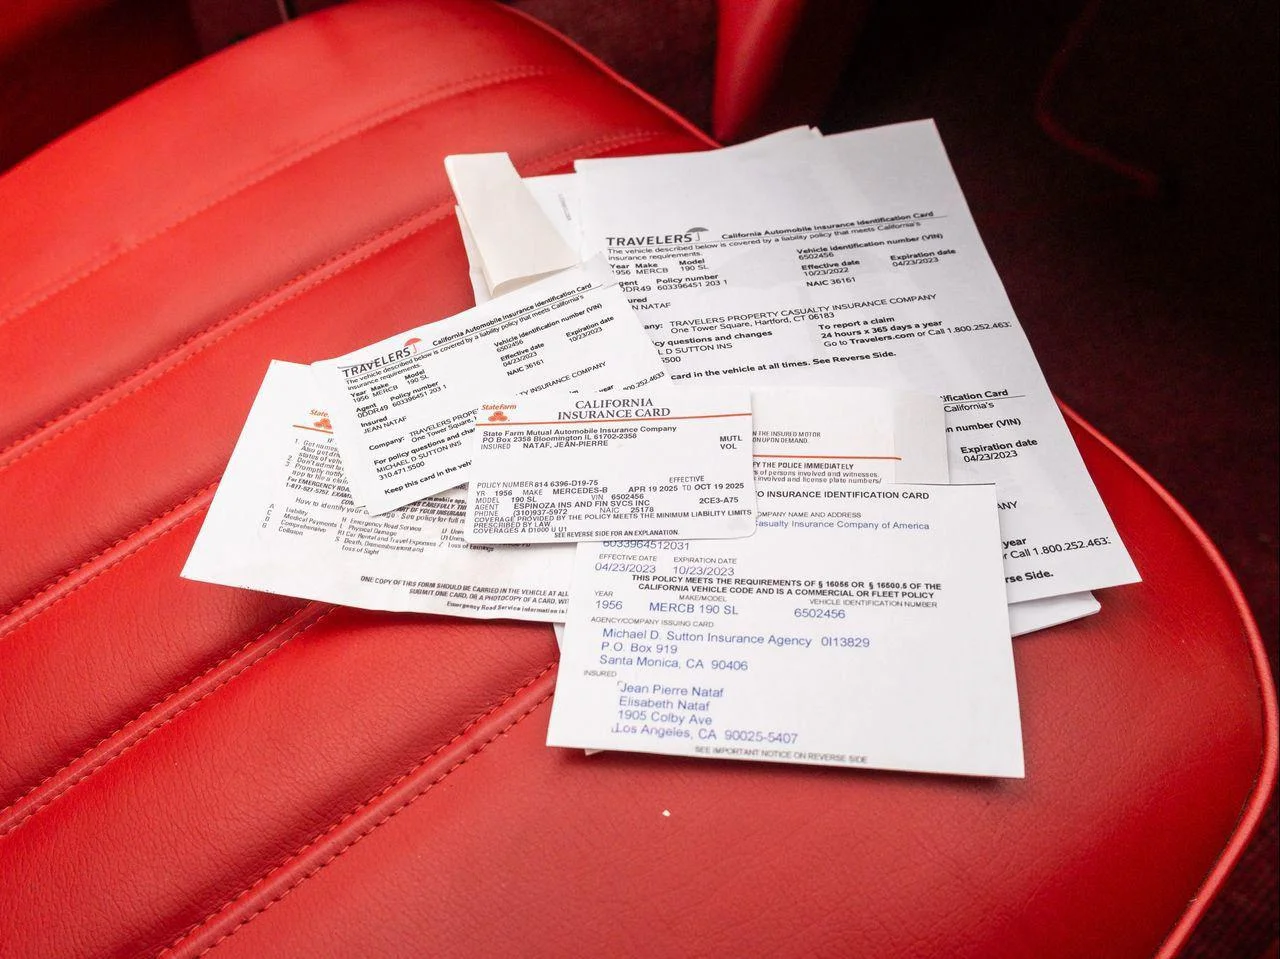 TRAVELERS California Automobile Insurance Identification Card
The vehicle described below is covered by a liability policy that meets California's
insurance requirements.
Year Make Model Vehicle identification number (VIN)
1956 MERCB 190 SL 6502456
Agent Policy number Effective date Expiration date
0DDR49 603396451 203 1 10/23/2022 04/23/2023
NAIC 36161
ured
AN NATAF
any: TRAVELERS PROPERTY CASUALTY INSURANCE COMPANY
One Tower Square, Hartford, CT 06183
cy questions and changes To report a claim
L D SUTTON INS 24 hours x 365 days a year
5500 Go to Travelers.com or Call 1.800.252.463
card in the vehicle at all times. See Reverse Side.
TRAVELERS California Automobile Insurance Identification Card
The vehicle described below is covered by a liability policy that meets California's
insurance requirements.
Year Make Model Vehicle identification number (VIN)
1956 MERCB 190 SL 6502456
Agent Policy number Effective date Expiration date
0DDR49 603396451 203 1 04/23/2023 10/23/2023
Insured NAIC 36161
JEAN NATAF
Company: TRAVELERS PROPE TY INSURANCE COMPANY
One Tower Square,
For policy questions and cha
MICHAEL D SUTTON INS .800.252.463
310.471.5500
Keep this card in the vehic
ification Card
California's
n number (VIN)
Expiration date
04/23/2023
ANY
year
r Call 1.800.252.463
rse Side.
State Farm CALIFORNIA
INSURANCE CARD
State Farm Mutual Automobile Insurance Company
PO Box 2358 Bloomington IL 61702-2358 MUTL
INSURED NATAF, JEAN-PIERRE VOL
POLICY NUMBER 814 6396-D19-75 EFFECTIVE
YR 1956 MAKE MERCEDES-B APR 19 2025 TO OCT 19 2025
MODEL 190 SL VIN 6502456
AGENT ESPINOZA INS AND FIN SVCS INC 2CE3-A75
PHONE (310)937-5972 NAIC 25178
COVERAGE PROVIDED BY THE POLICY MEETS THE MINIMUM LIABILITY LIMITS
PRESCRIBED BY LAW
COVERAGES A D1000 U U1
SEE REVERSE SIDE FOR AN EXPLANATION.
THE INSURED MOTOR
UPON DEMAND.
FY THE POLICE IMMEDIATELY
s of persons involved and witnesses.
nvolved and license plate numbers/
State Farm
IF
1. Get names
2. Don't admit
3. Promptly notify
For EMERGENCY ROA
1-877-627-5757. EXAMIN
How to identify your See policy for full n
A Liability H Emergency Road Service U
C Medical Payments L Physical Damage U1
D Comprehensive R1 Car Rental and Travel Expenses Z
G Collision S Death, Dismemberment and Loss of Earnings
Loss of Sight
ONE COPY OF THIS FORM SHOULD BE CARRIED IN THE VEHICLE AT ALL
SUBMIT ONE CARD, OR A PHOTOCOPY OF A CARD, WIT
Emergency Road Service information is l
TO INSURANCE IDENTIFICATION CARD
COMPANY NAME AND ADDRESS
Casualty Insurance Company of America
6033964512031
EFFECTIVE DATE EXPIRATION DATE
04/23/2023 10/23/2023
THIS POLICY MEETS THE REQUIREMENTS OF § 16056 OR § 16500.5 OF THE
CALIFORNIA VEHICLE CODE AND IS A COMMERCIAL OR FLEET POLICY
YEAR MAKE/MODEL VEHICLE IDENTIFICATION NUMBER
1956 MERCB 190 SL 6502456
AGENCY/COMPANY ISSUING CARD
Michael D. Sutton Insurance Agency 0I13829
P.O. Box 919
Santa Monica, CA 90406
INSURED
Jean Pierre Nataf
Elisabeth Nataf
1905 Colby Ave
Los Angeles, CA 90025-5407
SEE IMPORTANT NOTICE ON REVERSE SIDE